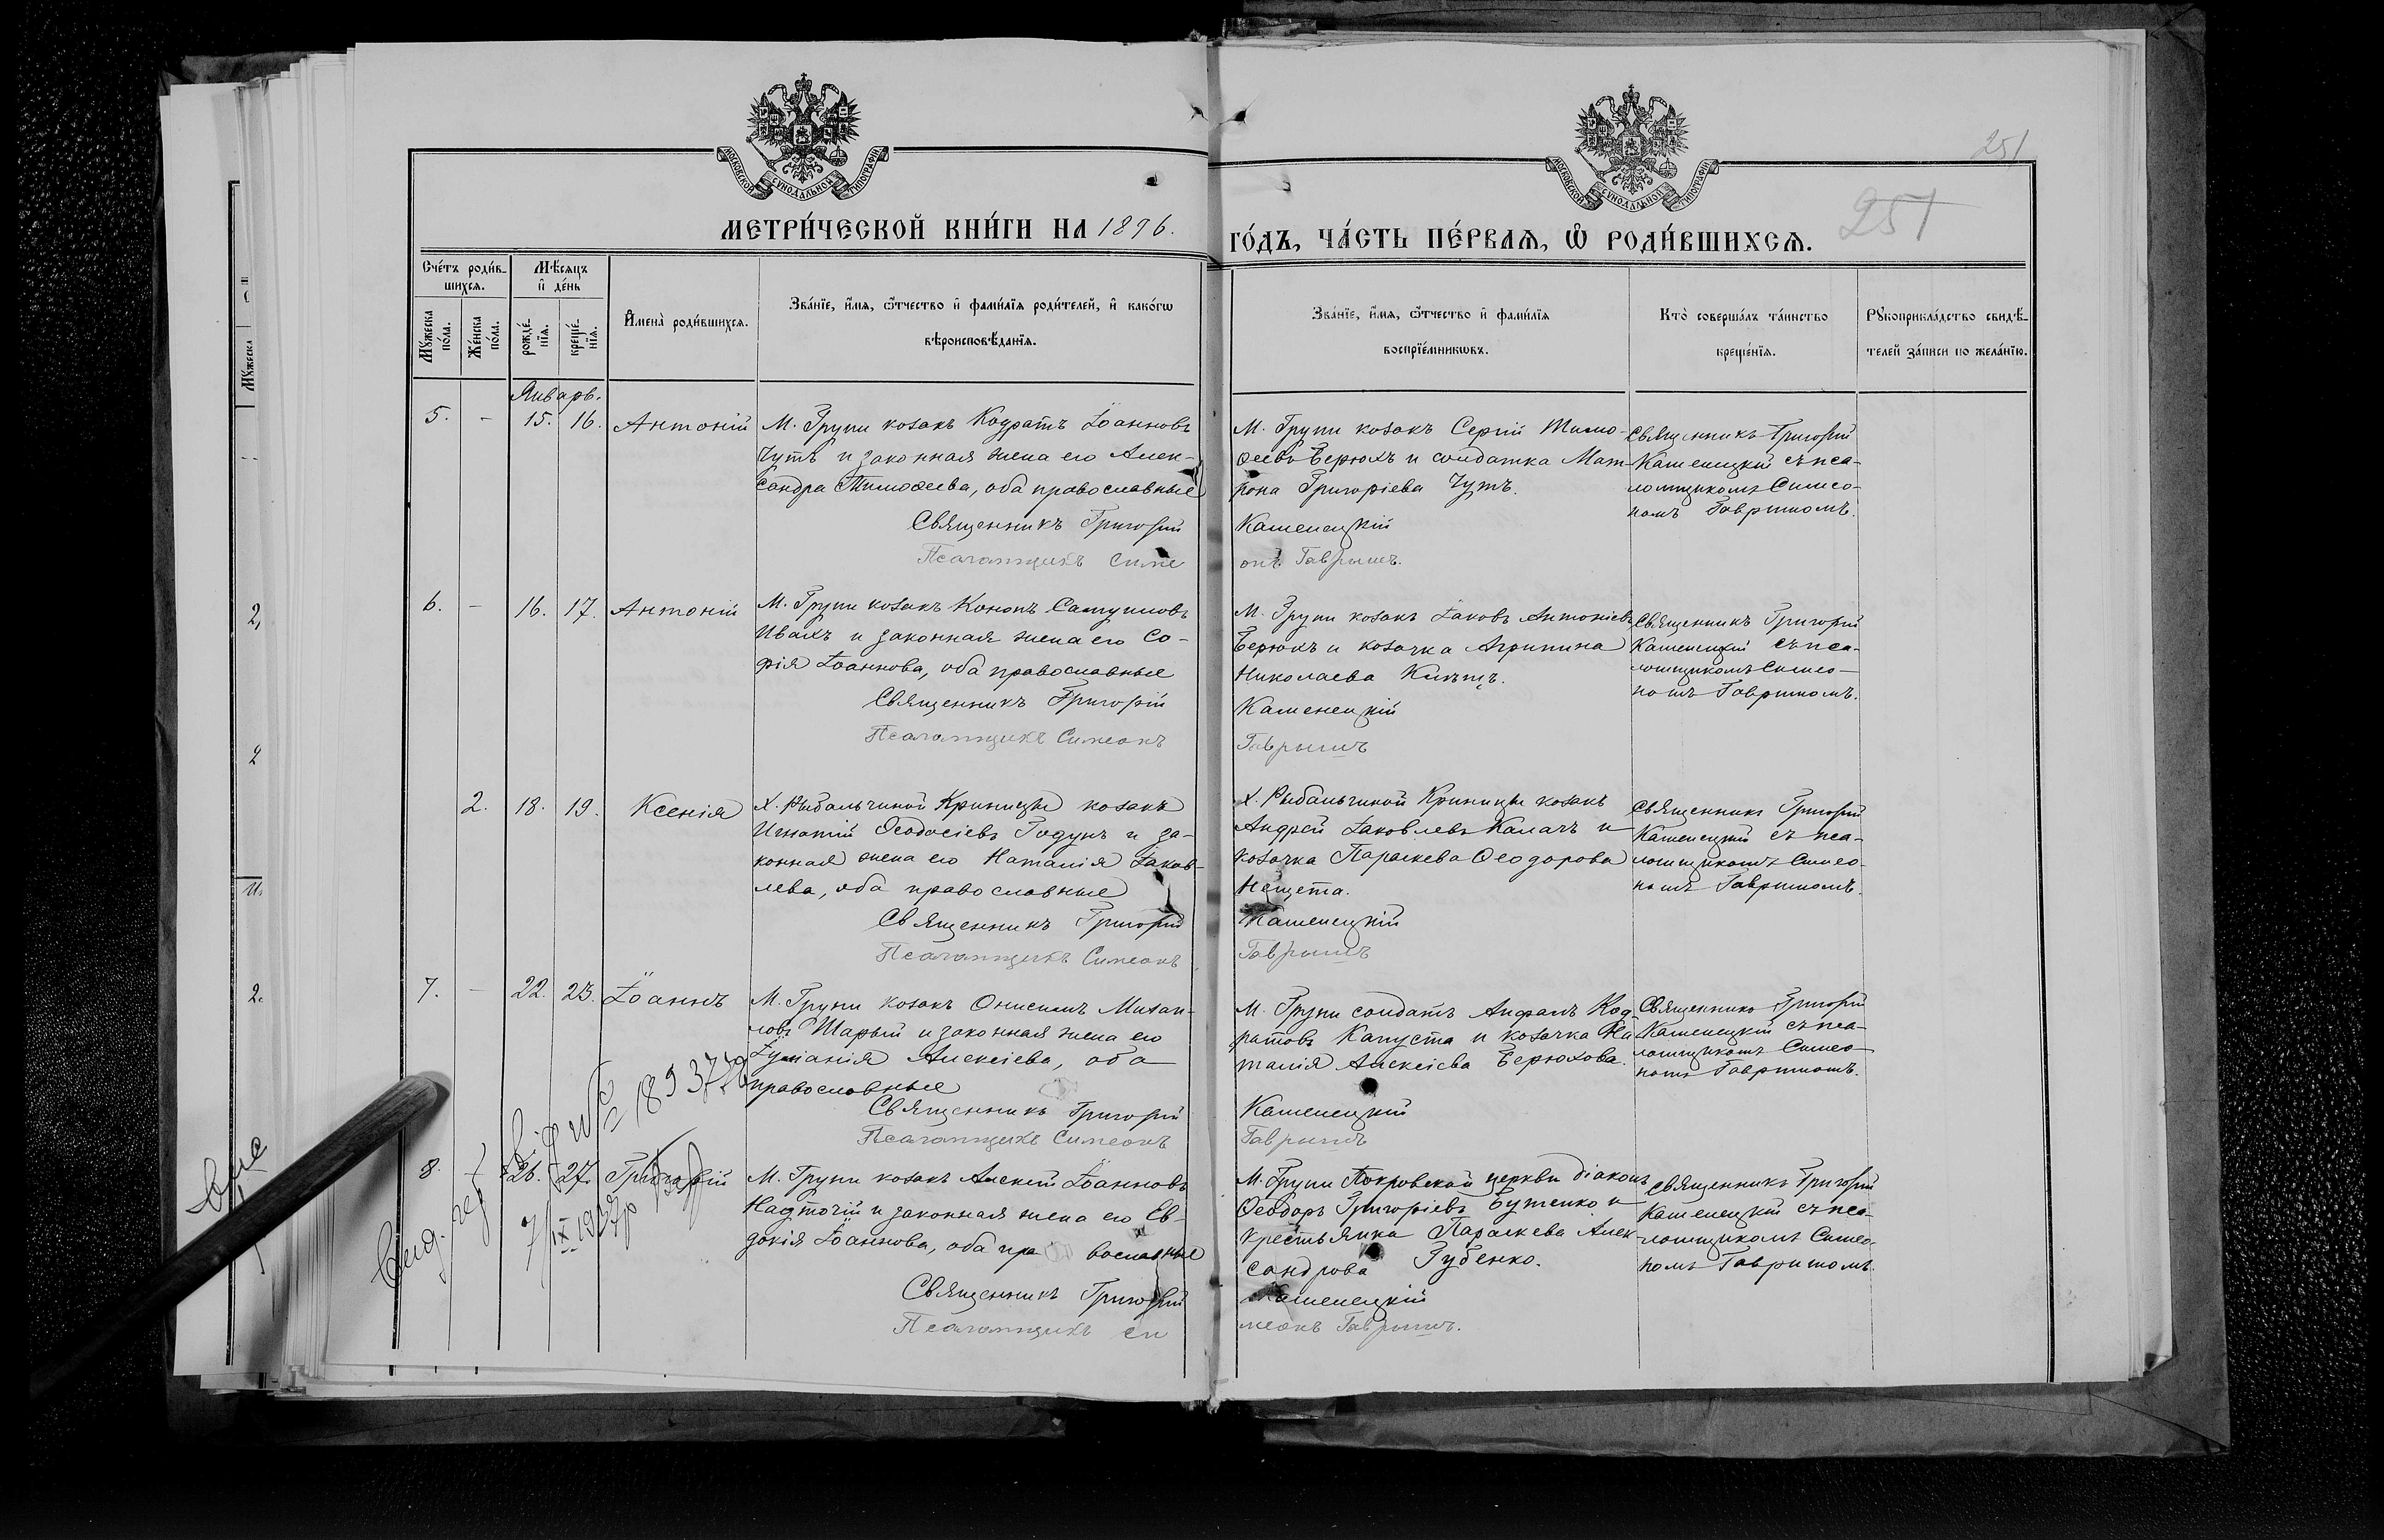 МОСКОВСКОЙ СѴНОДАЛЬНОЙ ТИПОГРАФІИ
МОСКОВСКОЙ СѴНОДАЛЬНОЙ ТИПОГРАФІИ
251
251
МЕТРИ́ЧЕСКОЙ КНИ́ГИ НА 1896.
ГО́ДЪ, ЧА́СТЬ ПЕ́РВАѦ, Ѽ РОДИ́ВШИХСѦ.
Сче́тъ роди́в-
шихсѧ.
Мꙋ́жеска
по́ла.
Же́нска
по́ла.
Мѣ́сѧцъ
и҆ де́нь
рожде́-
нїѧ.
креще́-
нїѧ.
И҆мена̀ роди́вшихсѧ.
Зва́нїе, и҆́мѧ, ѻ҆́тчество и҆ фами́лїѧ роди́телей, и҆ како́гѡ
вѣроисповѣ́данїѧ.
Зва́нїе, и҆́мѧ, ѻ҆́тчество и҆ фами́лїѧ
воспрїе́мникѡвъ.
Кто̀ соверша́лъ та́инство
креще́нїѧ.
Рꙋкоприкла́дство свидѣ́-
телей за́писи по жела́нїю.
Январь.
5. - 15. 16. Антоній
М. Груни козакъ Кодратъ Іоанновъ
Чутъ и законная жена его Алек-
сандра Тимоѳеева, оба православные
Священникъ Григорій
Псаломщикъ Симе
М. Груни козакъ Сергій Тимо-
ѳеевъ Берюхъ и солдатка Мат-
рона Григоріева Чутъ.
Каменецкій
онъ Гаврышъ.
Священникъ Григорій
Каменецкій съ пса-
ломщикомъ Симео-
номъ Гавришомъ.
6. - 16. 17. Антоній
М. Груни козакъ Кононъ Самуиловъ
Ивахъ и законная жена его Со-
фія Іоаннова, оба православные
Священникъ Григорій
Псаломщикъ Симеонъ
М. Груни козакъ Іаковъ Антоніевъ
Берюхъ и козачка Агрипина
Николаева
Каменецкій
Гаврышъ
Священникъ Григорій
Каменецкій съ пса-
ломщикомъ Симео-
номъ Гавришомъ.
2. 18. 19. Ксенія
Х. Рыбальчиной Криницы козакъ
Игнатій Ѳеодосіевъ Годунъ и за-
конная жена его Наталія Іаков-
лева, оба православные
Священникъ Григорій
Псаломщикъ Симеонъ
Х. Рыбальчиной Криницы козакъ
Андрей Іаковлевъ Калачъ и
козачка Параскева Ѳеодорова
Нещета.
Каменецкій
Гаврышъ
Священникъ Григорій
Каменецкій съ пса-
ломщикомъ Симео-
номъ Гавришомъ.
7. - 22. 23. Іоаннъ
М. Груни козакъ Онисимъ Михаи-
ловъ Шарый и законная жена его
Іуліанія Алексіева, оба
православные
Священникъ Григорій
Псаломщикъ Симеонъ
М. Груни солдатъ Анфалъ Код-
ратовъ Капуста и козачка На-
талія Алексіева Берюхова.
Каменецкій
Гаврышъ
Священникъ Григорій
Каменецкій съ пса-
ломщикомъ Симео-
номъ Гавришомъ.
8. - 26. 27. Григорій
М. Груни козакъ Алексій Іоанновъ
Надточій и законная жена его Ев-
докія Іоаннова, оба пра вославные
Священникъ Григорій
Псаломщикъ Си
М. Груни Покровской церкви діаконъ
Ѳеодоръ Григоріевъ Бутенко и
крестьянка Параскева Алек-
сандрова Губенко.
Каменецкій
меонъ Гаврышъ.
Священникъ Григорій
Каменецкій съ пса-
ломщикомъ Симео-
номъ Гавришомъ.